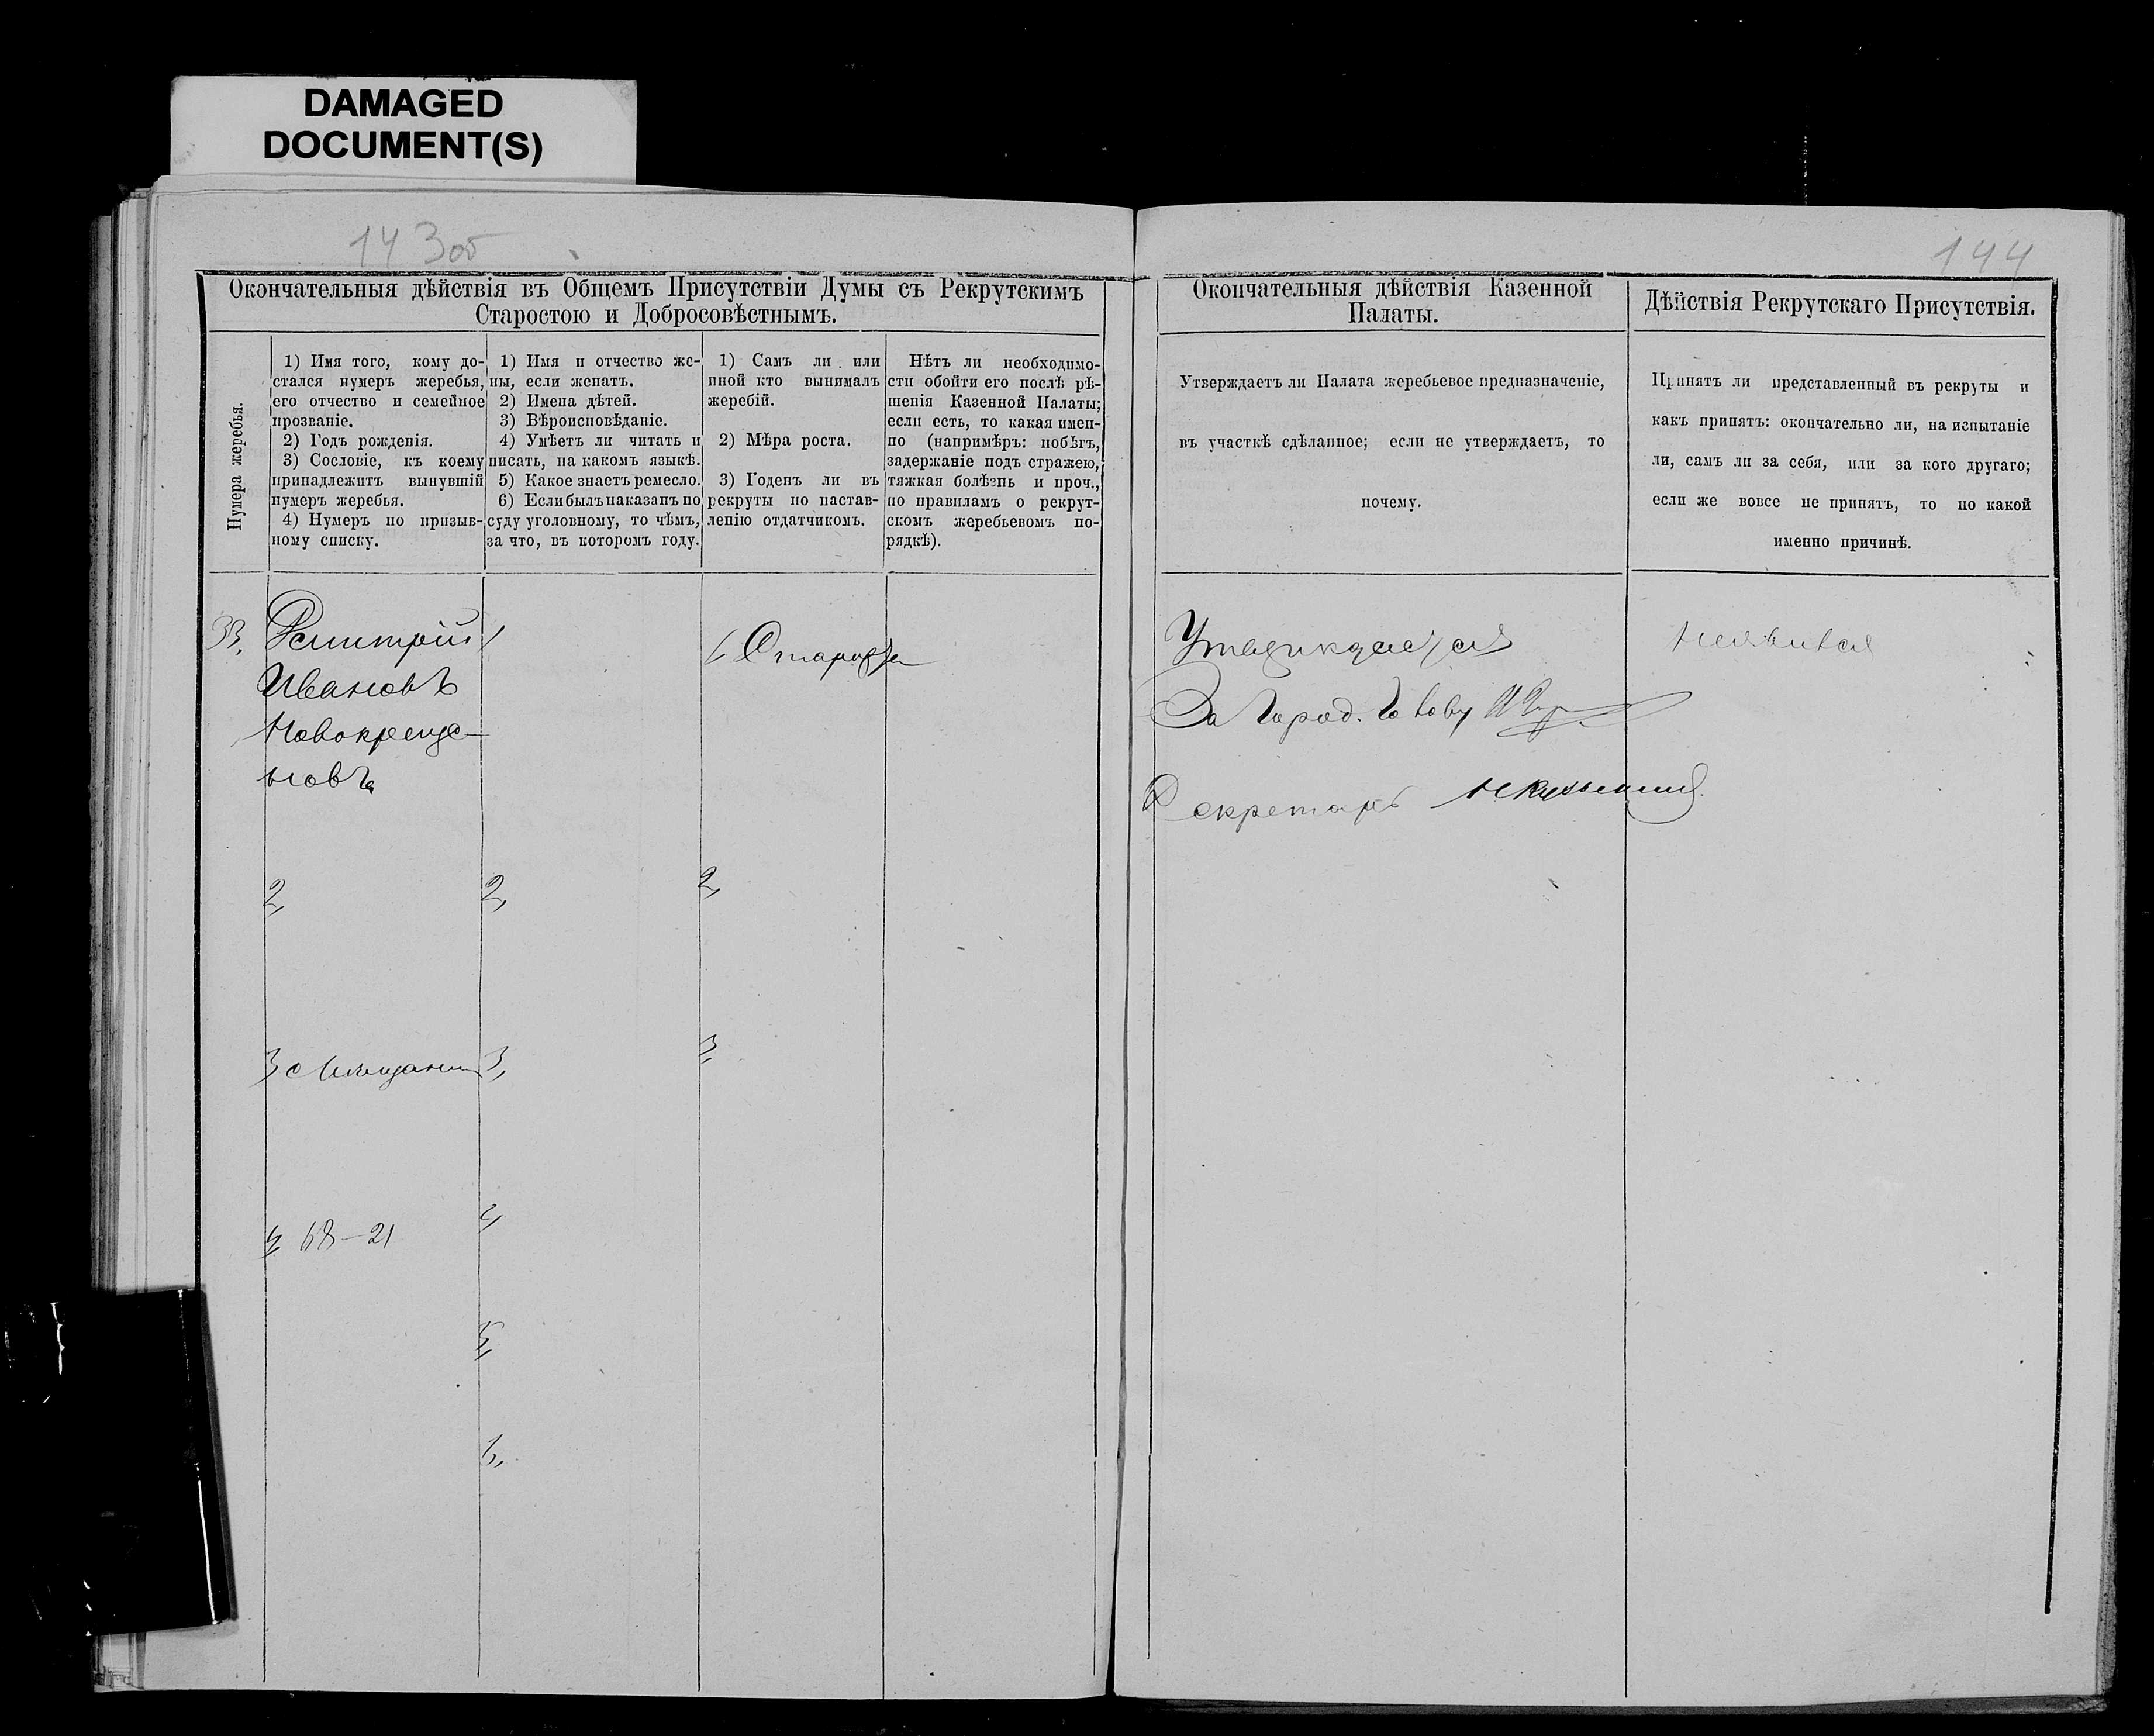 DAMAGED
DOCUMENT(S)
143 об
144
Окончательныя дѣйствія въ Общемъ Присутствіи Думы съ Рекрутскимъ
Старостою и Добросовѣстнымъ.
Нумера жеребья.
1) Имя того, кому до-
стался нумеръ жеребья,
его отчество и семейное
прозваніе.
2) Годъ рожденія.
3) Сословіе, къ коему
принадлежитъ вынувшій
нумеръ жеребья.
4) Нумеръ по призыв-
ному списку.
1) Имя и отчество же-
ны, если женатъ.
2) Имена дѣтей.
3) Вѣроисповѣданіе.
4) Умѣетъ ли читать и
писать, на какомъ языкѣ.
5) Какое знаетъ ремесло.
6) Если былъ наказанъ по
суду уголовному, то чѣмъ,
за что, въ которомъ году.
1) Самъ ли или
иной кто вынималъ
жеребій.
2) Мѣра роста.
3) Годенъ ли въ
рекруты по настав-
ленію отдатчикомъ.
Нѣтъ ли необходимо-
сти обойти его послѣ рѣ-
шенія Казенной Палаты;
если есть, то какая имен-
но (напримѣръ: побѣгъ,
задержаніе подъ стражею,
тяжкая болѣзнь и проч.,
по правиламъ о рекрут-
скомъ жеребьевомъ по-
рядкѣ).
33,
Дмитрій
Ивановъ
Новокреще-
новъ
2,
3 Мѣщанин
4, 68-21
1
2,
3,
4,
5,
6,
1, Староста
2,
3,
Окончательныя дѣйствія Казенной
Палаты.
Утверждаетъ ли Палата жеребьевое предназначеніе,
въ участкѣ сдѣланное; если не утверждаетъ, то
почему.
Утверждается
За Город. Голову
Секретарь
Дѣйствія Рекрутскаго Присутствія.
Принятъ ли представленный въ рекруты и
какъ принятъ: окончательно ли, на испытаніе
ли, самъ ли за себя, или за кого другаго;
если же вовсе не принятъ, то по какой
именно причинѣ.
Неявился